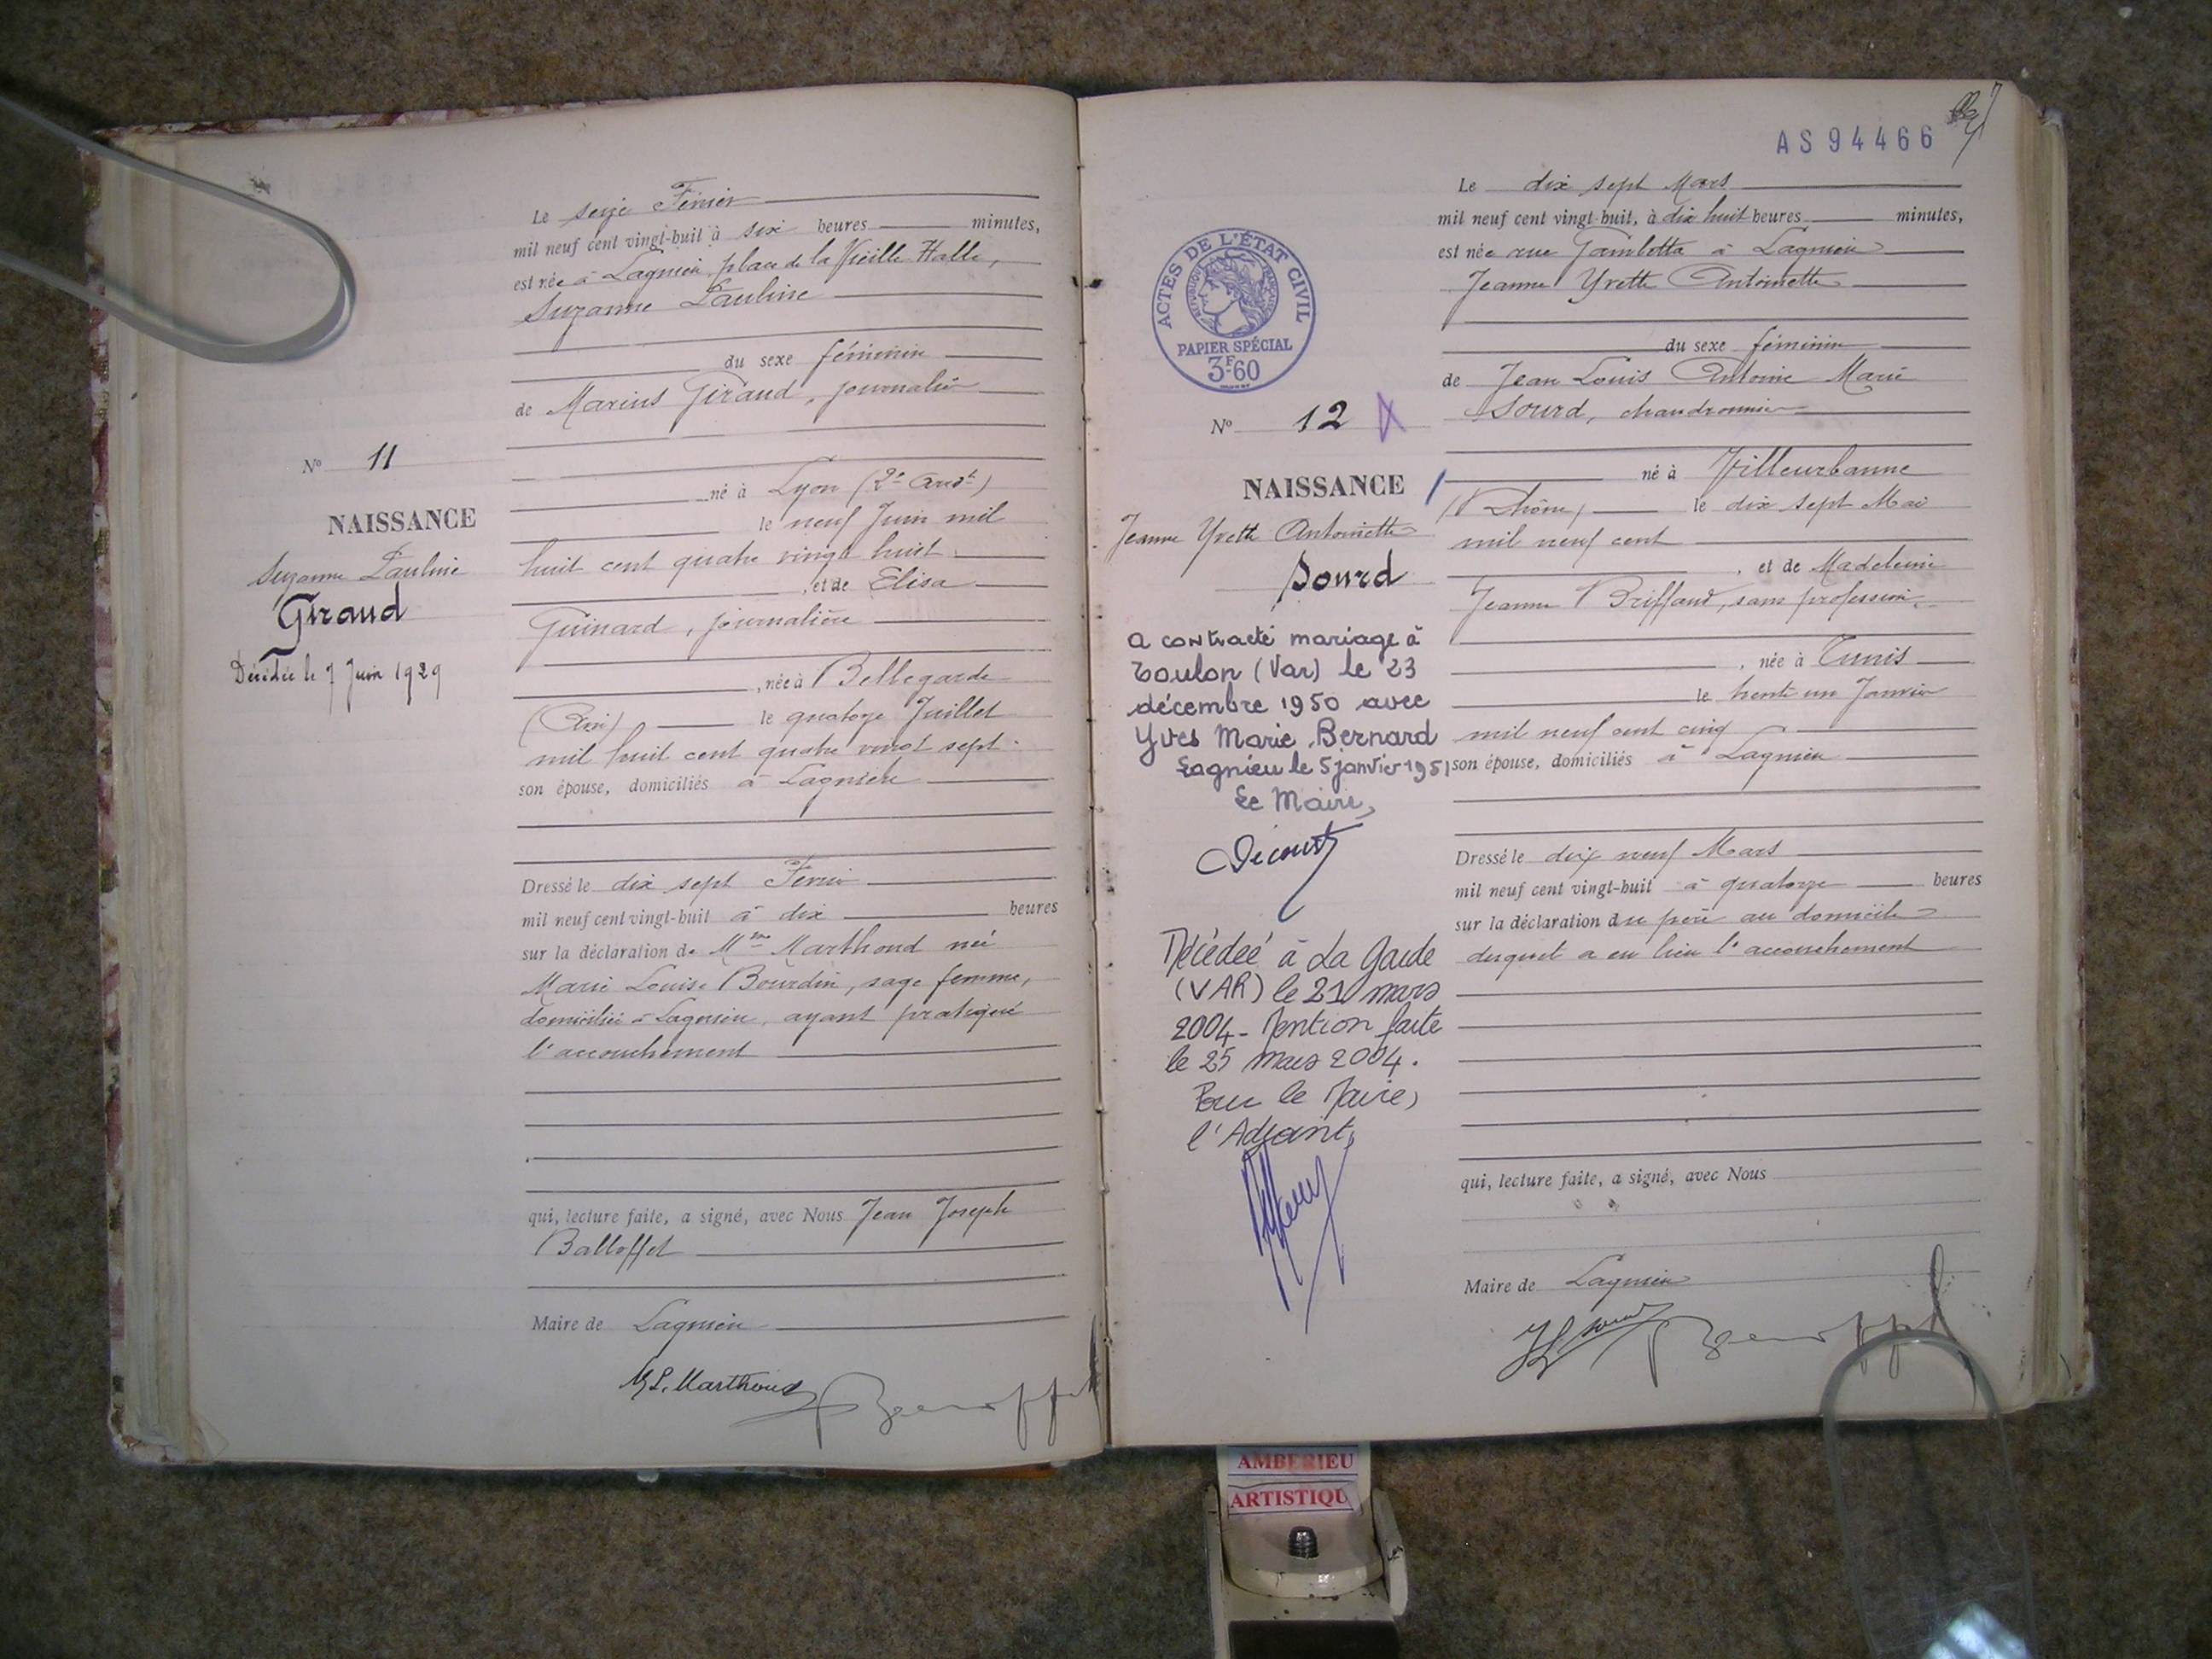 Le seize Février
mil neuf cent vingt-huit à six heures minutes,
est née à Lagnieu, place de la Vieille Halle,
Suzanne Pauline
du sexe féminin
de Marius Giraud, journalier
né à Lyon (2e Arrdt)
le neuf Juin mil
huit cent quatre vingt huit
, et de Elisa
Guinard, journalière
, née à Bellegarde
(Ain) le quatorze Juillet
mil huit cent quatre vingt sept
son épouse, domiciliés à Lagnieu
Dressé le dix sept Février
mil neuf cent vingt-huit à dix heures
sur la déclaration de Mme Marthoud née
Marie Louise Bourdin, sage femme,
domiciliée à Lagnieu, ayant pratiqué
l'accouchement
qui, lecture faite, a signé, avec Nous Jean Joseph
Balloffet
Maire de Lagnieu
M L. Marthoud
No 11
NAISSANCE
Suzanne Pauline
Giraud
Décédée le 7 Juin 1929
AS94466
ACTES DE L'ÉTAT CIVIL
RÉPUBLIQUE FRANÇAISE
PAPIER SPÉCIAL
3F60
No 12
NAISSANCE
Jeanne Yvette Antoinette
Sourd
a contracté mariage à
Toulon (Var) le 23
décembre 1950 avec
Yves Marie Bernard
Lagnieu le 5 janvier 1951
Le Maire,
Décédée à La Garde
(VAR) le 21 mars
2004 - Mention faite
le 25 mars 2004.
Pour le Maire,
l'Adjoint,
Le dix sept Mars
mil neuf cent vingt-huit, à dix huit heures minutes,
est née rue Gambetta à Lagnieu
Jeanne Yvette Antoinette
du sexe féminin
de Jean Louis Antoine Marie
Sourd, chaudronnier
né à Villeurbanne
(Rhône) le dix sept Mai
mil neuf cent
, et de Madeleine
Jeanne Briffaud, sans profession,
, née à Tunis
le trente un Janvier
mil neuf cent cinq
son épouse, domiciliés à Lagnieu
Dressé le dix neuf Mars
mil neuf cent vingt-huit à quatorze heures
sur la déclaration du père au domicile
duquel a eu lieu l'accouchement
qui, lecture faite, a signé, avec Nous
Maire de Lagnieu
AMBERIEU
ARTISTIQU